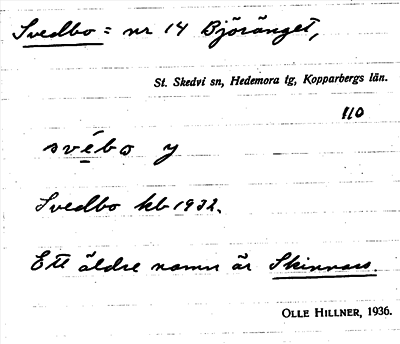 Svedbo = nr 14 Björänget,
St. Skedvi sn, Hedemora tg, Kopparbergs län.
110
svébo y
Svedbo kb 1932.
Ett äldre namn är Skinnars.
OLLE HILLNER, 1936.